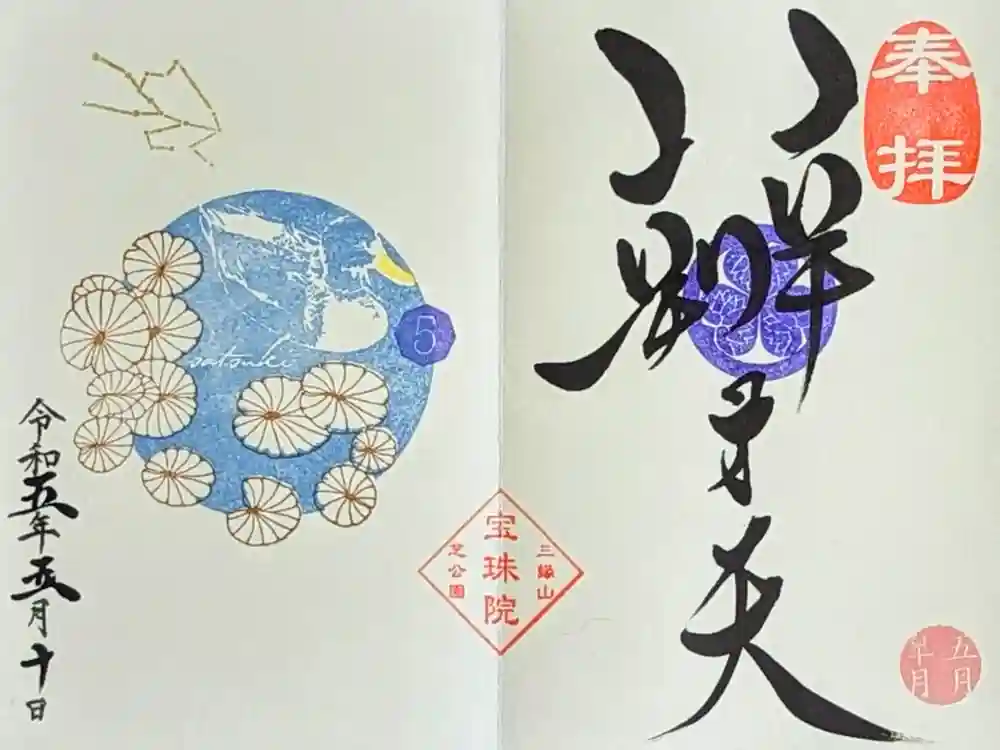 奉拝
辨才天
五月
早月
三縁山
宝珠院
芝公園
5
satsuki
令和五年五月十日